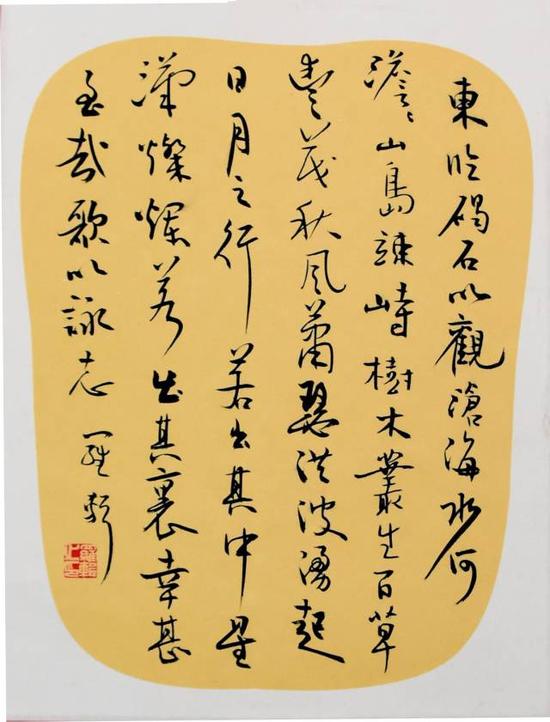 東臨碣石以觀滄海水何
澹〻山島竦峙樹木叢生百草
豐茂秋風蕭瑟洪波湧起
日月之行若出其中星
漢燦爛若出其裏幸甚
至哉歌以詠志 羅